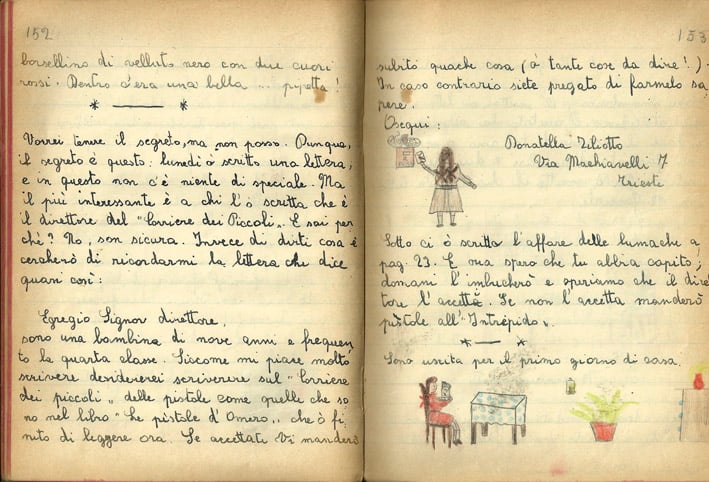 152
borsellino di velluto nero con due cuori
rossi. Dentro c'era una bella ... pipetta!
Vorrei tenere il segreto, ma non posso. Dunque,
il segreto è questo: lunedì ò scritto una lettera,
e in questo non c'è niente di speciale. Ma
il più interessante è a chi l'ò scritta che è
il direttore del "Corriere dei Piccoli". E sai per
chè? No, son sicura. Invece di dirti cosa è
cercherò di ricordarmi la lettera che dice
quasi così:
Egregio Signor direttore,
sono una bambina di nove anni e frequen
to la quarta classe. Siccome mi piace molto
scrivere desidererei scriverure sul "Corriere
dei piccoli" delle pistole come quelle che so
no nel libro "Le pistole d'Omero", che ò fi
nito di leggere ora. Se accettate Vi manderò
153
subito quache cosa (ò tante cose da dire!).
In caso contrario siete pregato di farmelo sa
pere.
Osequi:
Donatella Ziliotto
Via Machiavelli 7
Trieste
Sotto ci ò scritto l'affare delle lumache a
pag. 23. E ora spero che tu abbia capito;
domani l'imbucherò e speriamo che il dire
tore l'accetti. Se non l'accetta manderò
pistole all'"Intrépido".
Sono uscita per il primo giorno di casa.